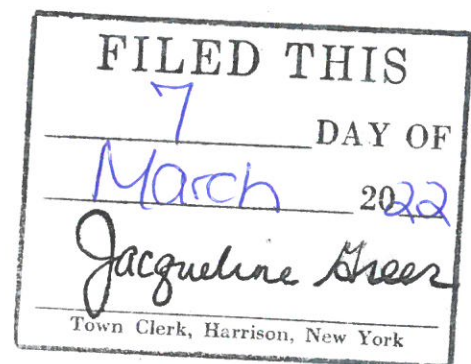 FILED THIS
7 DAY OF
March 2022
Jacqueline Greer
Town Clerk, Harrison, New York